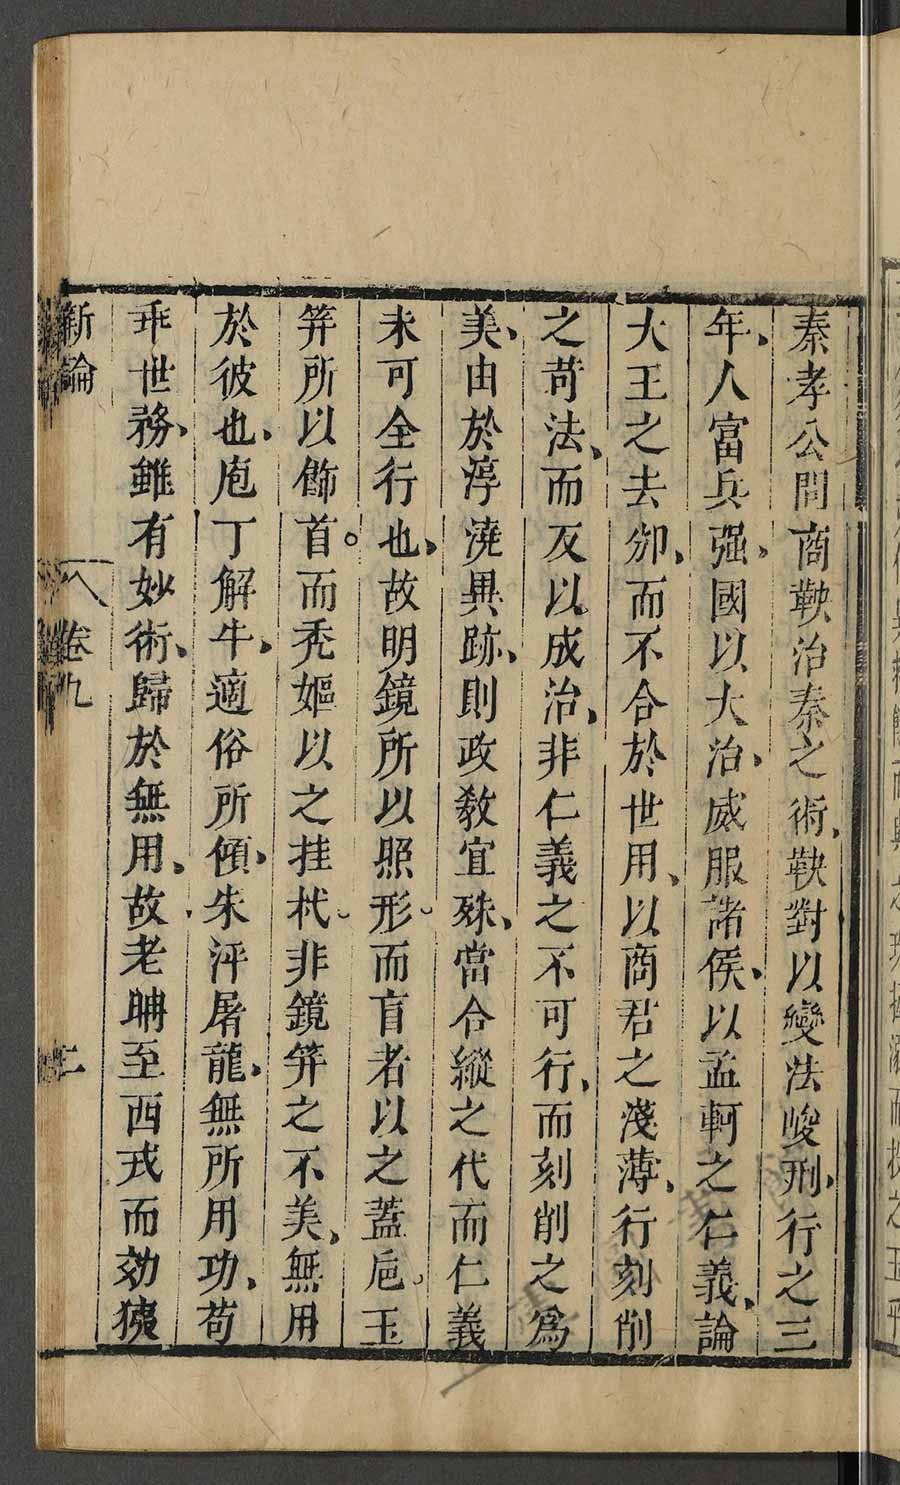 秦孝公問商鞅治秦之術、鞅對以變法峻刑、行之三
年、人富兵强、國以大治、威服諸侯、以孟軻之仁義、論
大王之去邠、而不合於世用、以商君之淺薄、行刻削
之苛法、而反以成治、非仁義之不可行、而刻削之爲
美、由於淳澆異跡、則政教宜殊、當合縱之代而仁義
未可全行也、故明鏡所以照形、而盲者以之蓋巵、玉
笄所以飾首。而秃嫗以之挂杙、非鏡笄之不美、無用
於彼也、庖丁解牛、適俗所傾、朱泙屠龍、無所用功、苟
乖世務、雖有妙術、歸於無用、故老聃至西戎而効
新論
卷九
二